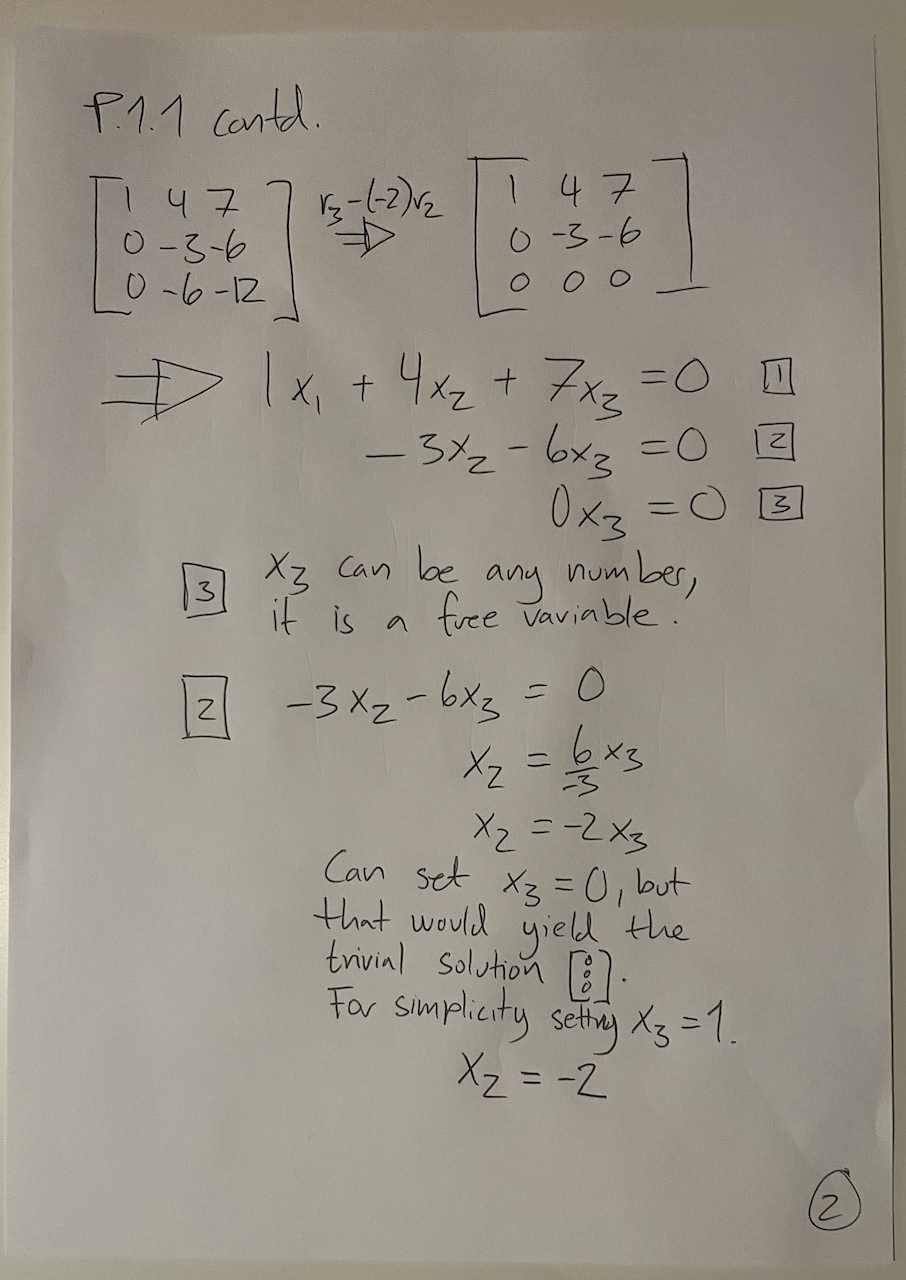 P.1.1 contd.
[1 4 7
0 -3 -6
0 -6 -12] r₃-(-2)r₂ ⇒ [1 4 7
0 -3 -6
0 0 0]
⇒ 1x₁ + 4x₂ + 7x₃ = 0 [1]
-3x₂ - 6x₃ = 0 [2]
0x₃ = 0 [3]
[3] x₃ can be any number,
it is a free variable.
[2] -3x₂ - 6x₃ = 0
x₂ = 6/-3 x₃
x₂ = -2x₃
Can set x₃ = 0, but
that would yield the
trivial solution [0 0 0].
For simplicity setting x₃ = 1.
x₂ = -2
2